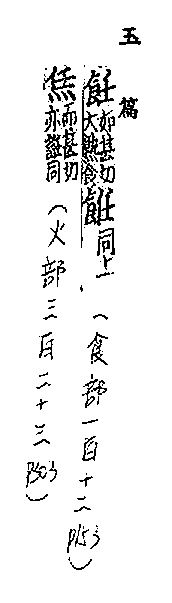 玉篇
飪 如甚切 大熟食 餁 同上 (食部一百十二 P153)
而甚切 亦飪同 (火部三百二十三 P503)